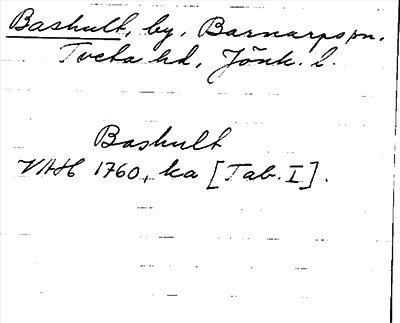 Bashult, by, Barnarps sn.
Tveta hd, Jönk. l.
Bashult
VAH 1760, ka [Tab. I].